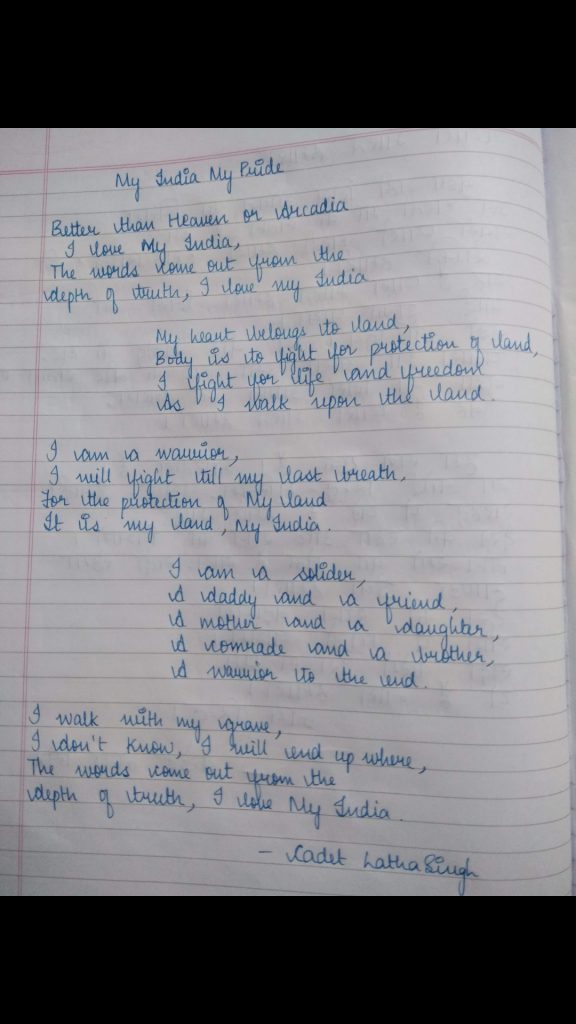 My India My Pride
Better than Heaven or Arcadia
I love My India,
The words come out from the
depth of truth, I love my India
My heart belongs to land,
Body is to fight for protection of land,
I fight for life and freedom
As I walk upon the land.
I am a warrior,
I will fight till my last breath,
For the protection of My land
It is my land, My India.
I am a solider,
A daddy and a friend,
A mother and a daughter,
A comrade and a brother,
A warrior to the end.
I walk with my grave,
I don't know, I will end up where,
The words come out from the
depth of truth, I love My India.
- Cadet Latha Singh